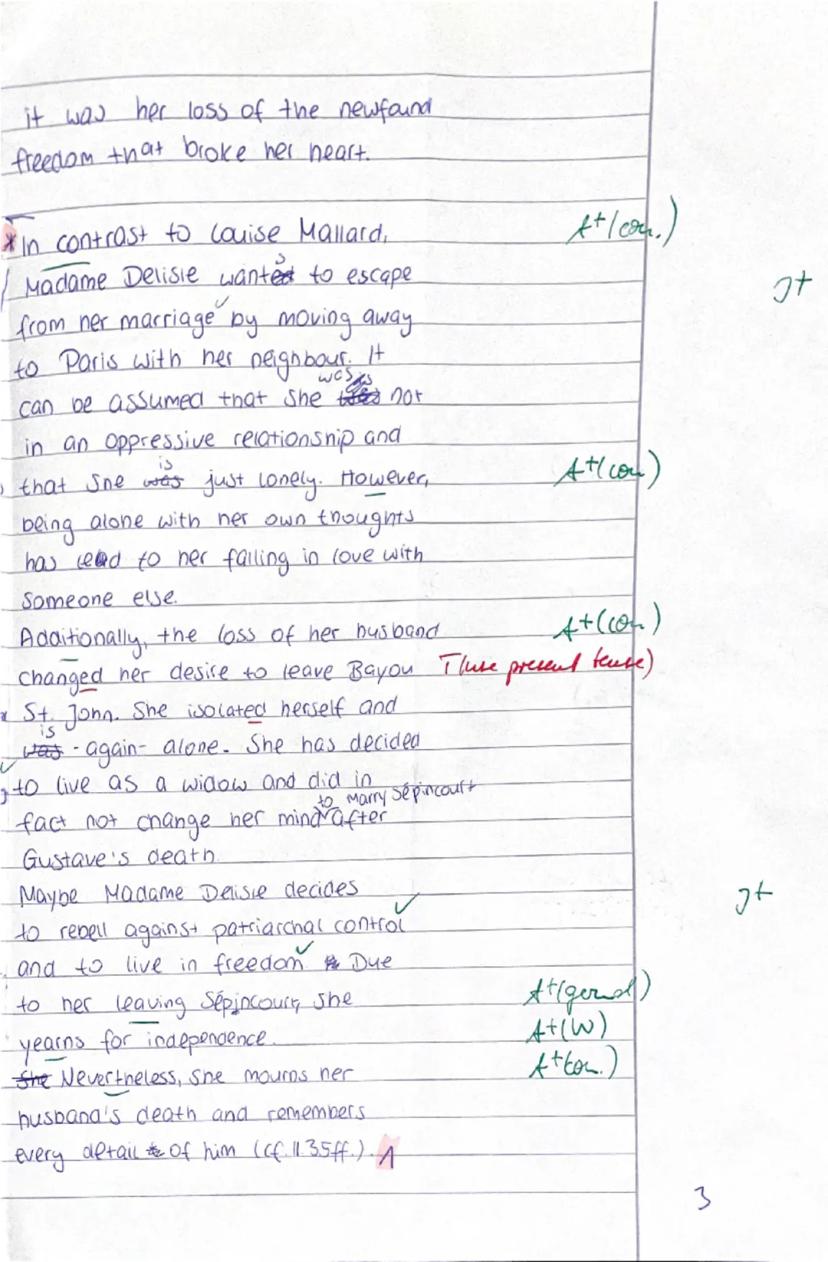 it was her loss of the newfound
freedom that broke her heart.
*In contrast to Louise Mallard, A+(con.)
Madame Delisle wants to escape J+
from her marriage by moving away
to Paris with her neighbour. It
can be assumed that she was not
in an oppressive relationship and
that she is just lonely. However, A+(con)
being alone with her own thoughts
has lead to her falling in love with
someone else.
Additionally, the loss of her husband A+(con.)
changed her desire to leave Bayou T(use present tense)
St. John. She isolated herself and
is - again - alone. She has decided
to live as a widow and did in
fact not change her mind to marry Sépincourt after
Gustave's death.
Maybe Madame Delisle decides J+
to rebell against patriarchal control
and to live in freedom. Due
to her leaving Sépincourt, she A+(gerund)
yearns for independence. A+(W)
Nevertheless, she mourns her A+(con.)
husband's death and remembers
every detail of him (cf. ll. 35ff.).
3